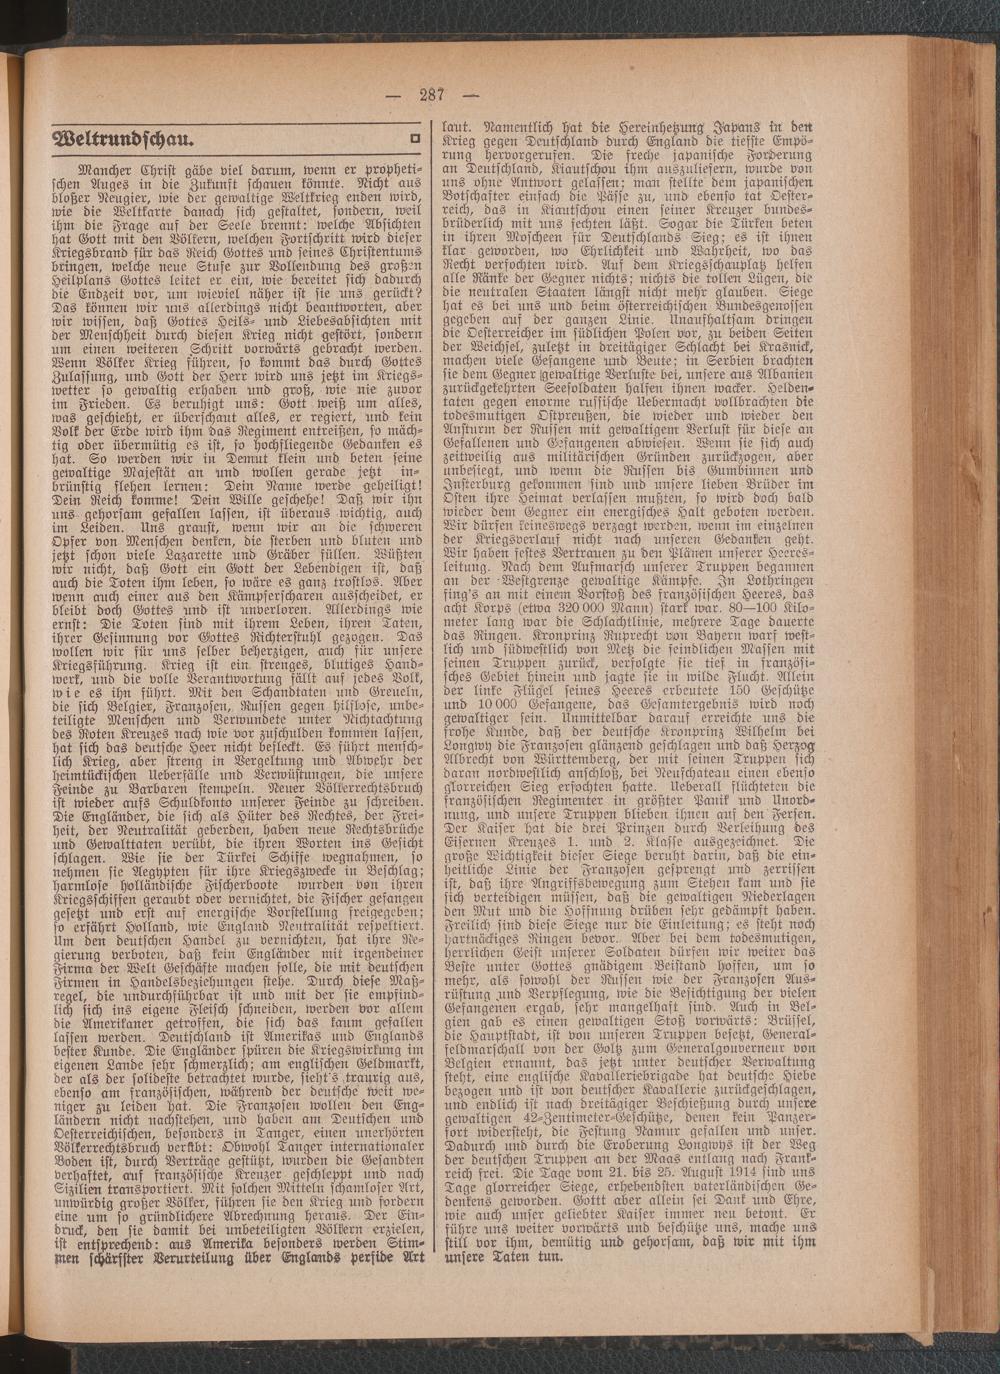 — 287 —
Weltrundschau.
Mancher Christ gäbe viel darum, wenn er propheti-
schen Auges in die Zukunft schauen könnte. Nicht aus
bloßer Neugier, wie der gewaltige Weltkrieg enden wird,
wie die Weltkarte danach sich gestaltet, sondern, weil
ihm die Frage auf der Seele brennt: welche Absichten
hat Gott mit den Völkern, welchen Fortschritt wird dieser
Kriegsbrand für das Reich Gottes und seines Christentums
bringen, welche neue Stufe zur Vollendung des großen
Heilplans Gottes leitet er ein, wie bereitet sich dadurch
die Endzeit vor, um wieviel näher ist sie uns gerückt?
Das können wir uns allerdings nicht beantworten, aber
wir wissen, daß Gottes Heils- und Liebesabsichten mit
der Menschheit durch diesen Krieg nicht gestört, sondern
um einen weiteren Schritt vorwärts gebracht werden.
Wenn Völker Krieg führen, so kommt das durch Gottes
Zulassung, und Gott der Herr wird uns jetzt im Kriegs-
wetter so gewaltig erhaben und groß, wie nie zuvor
im Frieden. Es beruhigt uns: Gott weiß um alles,
was geschieht, er überschaut alles, er regiert, und kein
Volk der Erde wird ihm das Regiment entreißen, so mäch-
tig oder übermütig es ist, so hochfliegende Gedanken es
hat. So werden wir in Demut klein und beten seine
gewaltige Majestät an und wollen gerade jetzt in-
brünstig flehen lernen: Dein Name werde geheiligt!
Dein Reich komme! Dein Wille geschehe! Daß wir ihn
uns gehorsam gefallen lassen, ist überaus wichtig, auch
im Leiden. Uns graust, wenn wir an die schweren
Opfer von Menschen denken, die sterben und bluten und
jetzt schon viele Lazarette und Gräber füllen. Wüßten
wir nicht, daß Gott ein Gott der Lebendigen ist, daß
auch die Toten ihm leben, so wäre es ganz trostlos. Aber
wenn auch einer aus den Kämpferscharen ausscheidet, er
bleibt doch Gottes und ist unverloren. Allerdings wie
ernst: Die Toten sind mit ihrem Leben, ihren Taten,
ihrer Gesinnung vor Gottes Richterstuhl gezogen. Das
wollen wir für uns selber beherzigen, auch für unsere
Kriegsführung. Krieg ist ein strenges, blutiges Hand-
werk, und die volle Verantwortung fällt auf jedes Volk,
wie es ihn führt. Mit den Schandtaten und Greueln,
die sich Belgier, Franzosen, Russen gegen hilflose, unbe-
teiligte Menschen und Verwundete unter Nichtachtung
des Roten Kreuzes nach wie vor zuschulden kommen lassen,
hat sich das deutsche Heer nicht befleckt. Es führt mensch-
lich Krieg, aber streng in Vergeltung und Abwehr der
heimtückischen Ueberfälle und Verwüstungen, die unsere
Feinde zu Barbaren stempeln. Neuer Völkerrechtsbruch
ist wieder aufs Schuldkonto unserer Feinde zu schreiben.
Die Engländer, die sich als Hüter des Rechtes, der Frei-
heit, der Neutralität geberden, haben neue Rechtsbrüche
und Gewalttaten verübt, die ihren Worten ins Gesicht
schlagen. Wie sie der Türkei Schiffe wegnahmen, so
nehmen sie Aegypten für ihre Kriegszwecke in Beschlag;
harmlose holländische Fischerboote wurden von ihren
Kriegsschiffen geraubt oder vernichtet, die Fischer gefangen
gesetzt und erst auf energische Vorstellung freigegeben;
so erfährt Holland, wie England Neutralität respektiert.
Um den deutschen Handel zu vernichten, hat ihre Re-
gierung verboten, daß kein Engländer mit irgendeiner
Firma der Welt Geschäfte machen solle, die mit deutschen
Firmen in Handelsbeziehungen stehe. Durch diese Maß-
regel, die undurchführbar ist und mit der sie empfind-
lich sich ins eigene Fleisch schneiden, werden vor allem
die Amerikaner getroffen, die sich das kaum gefallen
lassen werden. Deutschland ist Amerikas und Englands
bester Kunde. Die Engländer spüren die Kriegswirkung im
eigenen Lande sehr schmerzlich; am englischen Geldmarkt,
der als der solideste betrachtet wurde, sieht's traurig aus,
ebenso am französischen, während der deutsche weit we-
niger zu leiden hat. Die Franzosen wollen den Eng-
ländern nicht nachstehen, und haben am Deutschen und
Oesterreichischen, besonders in Tanger, einen unerhörten
Völkerrechtsbruch verübt: Obwohl Tanger internationaler
Boden ist, durch Verträge gestützt, wurden die Gesandten
verhaftet, auf französische Kreuzer geschleppt und nach
Sizilien transportiert. Mit solchen Mitteln schamloser Art,
unwürdig großer Völker, führen sie den Krieg und fordern
eine um so gründlichere Abrechnung heraus. Der Ein-
druck, den sie damit bei unbeteiligten Völkern erzielen,
ist entsprechend: aus Amerika besonders werden Stim-
men schärfster Verurteilung über Englands perfide Art
laut. Namentlich hat die Hereinhetzung Japans in den
Krieg gegen Deutschland durch England die tiefste Empö-
rung hervorgerufen. Die freche japanische Forderung
an Deutschland, Kiautschou ihm auszuliefern, wurde von
uns ohne Antwort gelassen; man stellte dem japanischen
Botschafter einfach die Pässe zu, und ebenso tat Oester-
reich, das in Kiautschou einen seiner Kreuzer bundes-
brüderlich mit uns fechten läßt. Sogar die Türken beten
in ihren Moscheen für Deutschlands Sieg; es ist ihnen
klar geworden, wo Ehrlichkeit und Wahrheit, wo das
Recht verfochten wird. Auf dem Kriegsschauplatz helfen
alle Ränke der Gegner nichts; nichts die tollen Lügen, die
die neutralen Staaten längst nicht mehr glauben. Siege
hat es bei uns und beim österreichischen Bundesgenossen
gegeben auf der ganzen Linie. Unaufhaltsam dringen
die Oesterreicher im südlichen Polen vor, zu beiden Seiten
der Weichsel, zuletzt in dreitägiger Schlacht bei Krasnick,
machen viele Gefangene und Beute; in Serbien brachten
sie dem Gegner gewaltige Verluste bei, unsere aus Albanien
zurückgekehrten Seesoldaten halfen ihnen wacker. Helden-
taten gegen enorme russische Uebermacht vollbrachten die
todesmutigen Ostpreußen, die wieder und wieder den
Ansturm der Russen mit gewaltigem Verlust für diese an
Gefallenen und Gefangenen abwiesen. Wenn sie sich auch
zeitweilig aus militärischen Gründen zurückzogen, aber
unbesiegt, und wenn die Russen bis Gumbinnen und
Insterburg gekommen sind und unsere lieben Brüder im
Osten ihre Heimat verlassen mußten, so wird doch bald
wieder dem Gegner ein energisches Halt geboten werden.
Wir dürfen keineswegs verzagt werden, wenn im einzelnen
der Kriegsverlauf nicht nach unseren Gedanken geht.
Wir haben festes Vertrauen zu den Plänen unserer Heeres-
leitung. Nach dem Aufmarsch unserer Truppen begannen
an der Westgrenze gewaltige Kämpfe. In Lothringen
fing's an mit einem Vorstoß des französischen Heeres, das
acht Korps (etwa 320 000 Mann) stark war. 80—100 Kilo-
meter lang war die Schlachtlinie, mehrere Tage dauerte
das Ringen. Kronprinz Ruprecht von Bayern warf west-
lich und südwestlich von Metz die feindlichen Massen mit
seinen Truppen zurück, verfolgte sie tief in französi-
sches Gebiet hinein und jagte sie in wilde Flucht. Allein
der linke Flügel seines Heeres erbeutete 150 Geschütze
und 10 000 Gefangene, das Gesamtergebnis wird noch
gewaltiger sein. Unmittelbar darauf erreichte uns die
frohe Kunde, daß der deutsche Kronprinz Wilhelm bei
Longwy die Franzosen glänzend geschlagen und daß Herzog
Albrecht von Württemberg, der mit seinen Truppen sich
daran nordwestlich anschloß, bei Neufchateau einen ebenso
glorreichen Sieg erfochten hatte. Ueberall flüchteten die
französischen Regimenter in größter Panik und Unord-
nung, und unsere Truppen blieben ihnen auf den Fersen.
Der Kaiser hat die drei Prinzen durch Verleihung des
Eisernen Kreuzes 1. und 2. Klasse ausgezeichnet. Die
große Wichtigkeit dieser Siege beruht darin, daß die ein-
heitliche Linie der Franzosen gesprengt und zerrissen
ist, daß ihre Angriffsbewegung zum Stehen kam und sie
sich verteidigen müssen, daß die gewaltigen Niederlagen
den Mut und die Hoffnung drüben sehr gedämpft haben.
Freilich sind diese Siege nur die Einleitung; es steht noch
hartnäckiges Ringen bevor. Aber bei dem todesmutigen,
herrlichen Geist unserer Soldaten dürfen wir weiter das
Beste unter Gottes gnädigem Beistand hoffen, um so
mehr, als sowohl der Russen wie der Franzosen Aus-
rüstung und Verpflegung, wie die Besichtigung der vielen
Gefangenen ergab, sehr mangelhaft sind. Auch in Bel-
gien gab es einen gewaltigen Stoß vorwärts: Brüssel,
die Hauptstadt, ist von unseren Truppen besetzt, General-
feldmarschall von der Goltz zum Generalgouverneur von
Belgien ernannt, das jetzt unter deutscher Verwaltung
steht, eine englische Kavalleriebrigade hat deutsche Hiebe
bezogen und ist von deutscher Kavallerie zurückgeschlagen,
und endlich ist nach dreitägiger Beschießung durch unsere
gewaltigen 42-Zentimeter-Geschütze, denen kein Panzer-
fort widersteht, die Festung Namur gefallen und unser.
Dadurch und durch die Eroberung Longwys ist der Weg
der deutschen Truppen an der Maas entlang nach Frank-
reich frei. Die Tage vom 21. bis 25. August 1914 sind uns
Tage glorreicher Siege, erhebendsten vaterländischen Ge-
denkens geworden. Gott aber allein sei Dank und Ehre,
wie auch unser geliebter Kaiser immer neu betont. Er
führe uns weiter vorwärts und beschütze uns, mache uns
still vor ihm, demütig und gehorsam, daß wir mit ihm
unsere Taten tun.